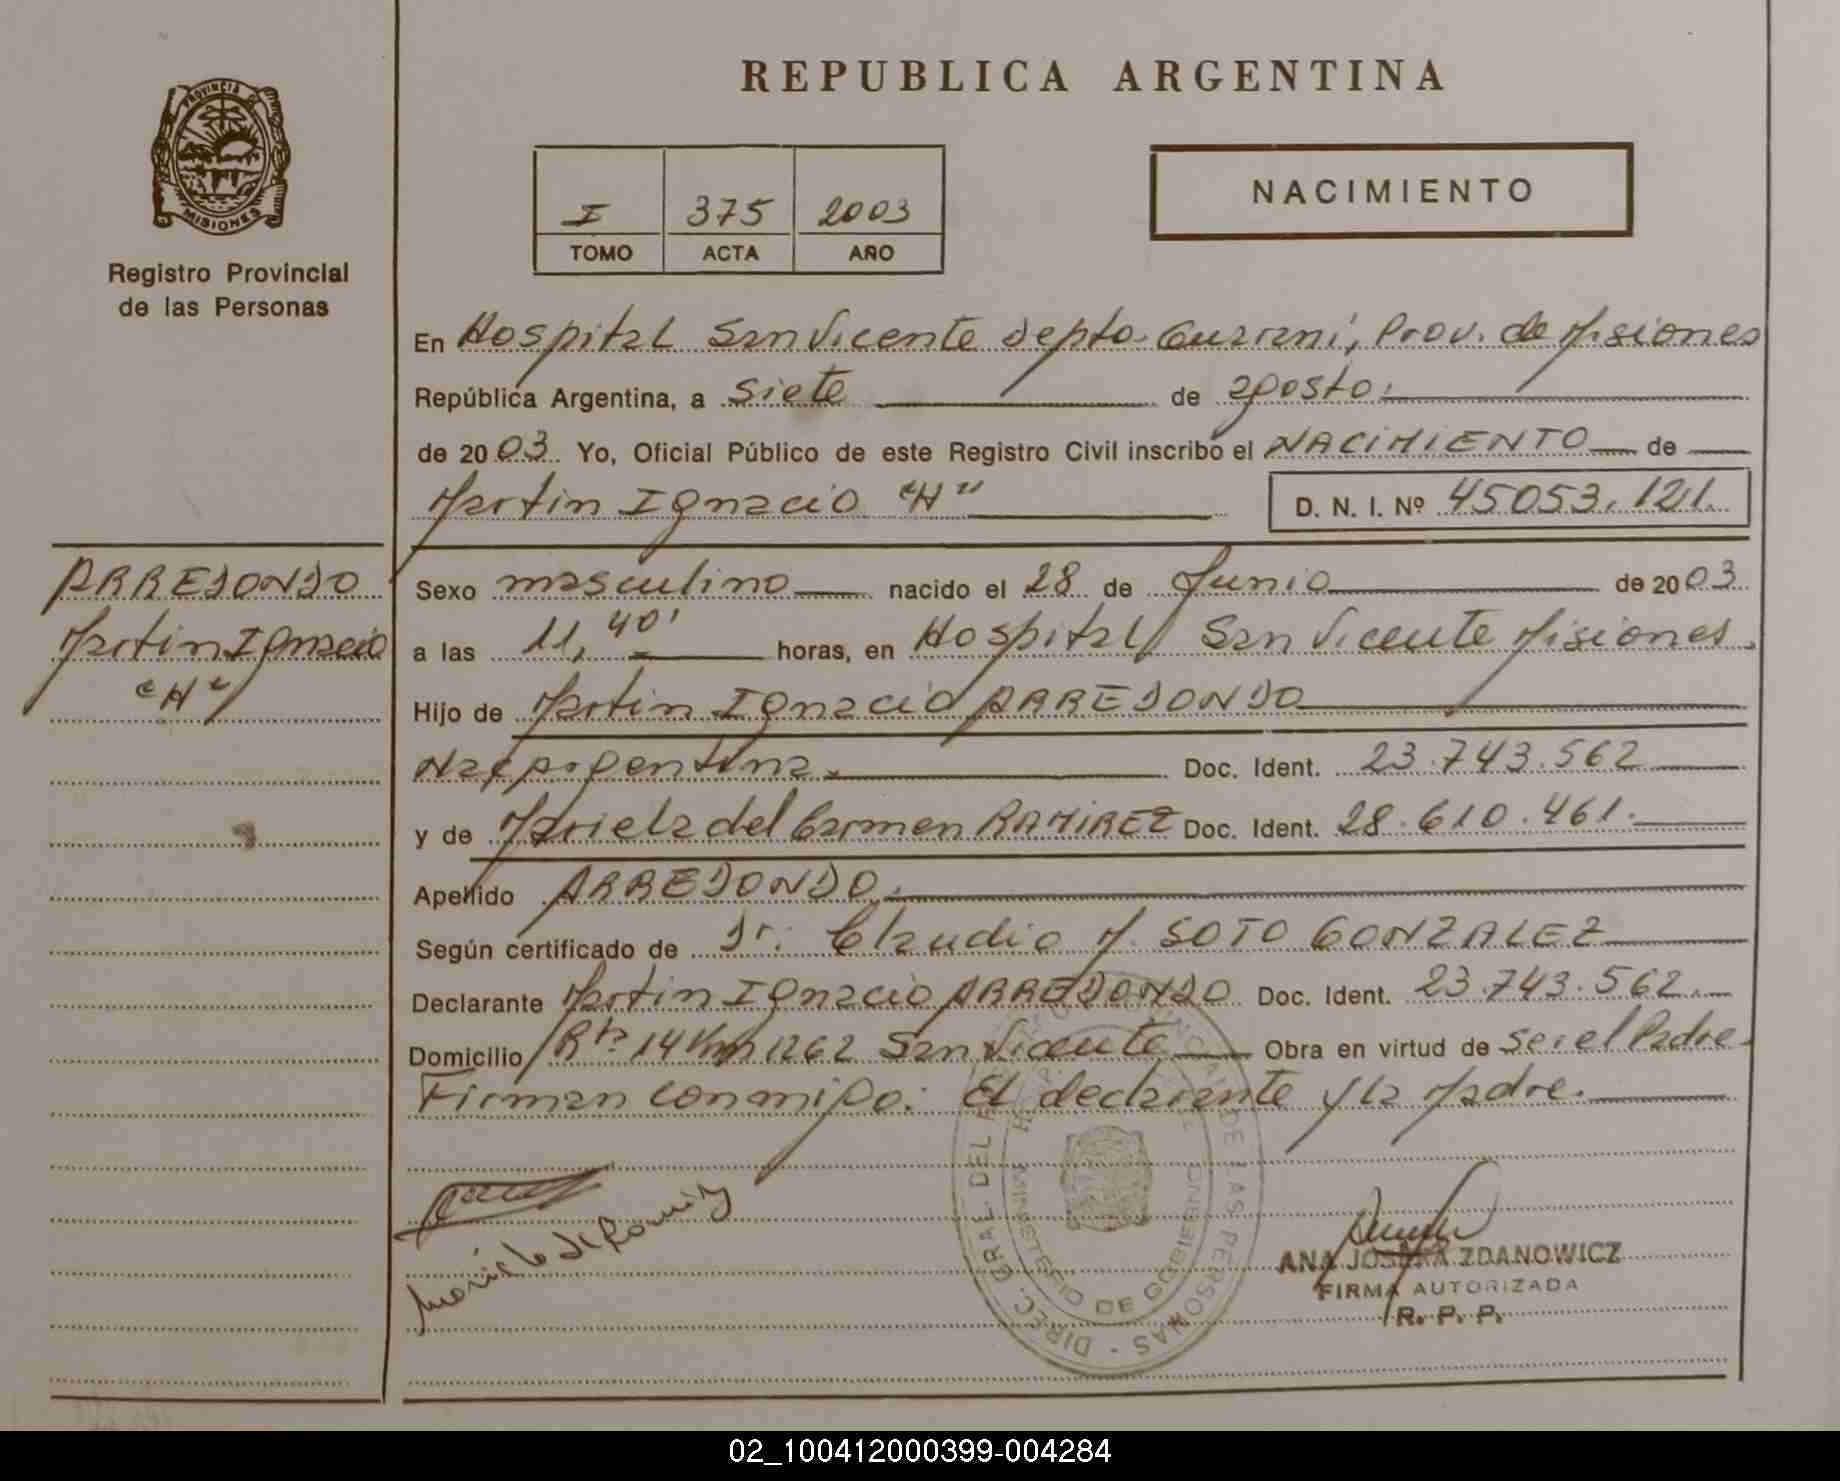 PROVINCIA DE
MISIONES
Registro Provincial
de las Personas
REPUBLICA ARGENTINA
I 375 2003
TOMO ACTA AÑO
NACIMIENTO
En Hospital San Vicente Depto. Guarani, Prov. de Misiones
República Argentina, a siete de agosto.
de 2003. Yo, Oficial Público de este Registro Civil inscribo el NACIMIENTO de
Martin Ignacio "H" D. N. I. Nº 45053.121.
ARREDONDO
Martin Ignacio
"H"
Sexo masculino nacido el 28 de Junio de 2003
a las 11,40' horas, en Hospital San Vicente Misiones.
Hijo de Martin Ignacio ARREDONDO
Nac. Argentina. Doc. Ident. 23.743.562
y de Mariela del Carmen RAMIREZ Doc. Ident. 28.610.461.
Apellido ARREDONDO.
Según certificado de Dr. Claudio M. SOTO GONZALEZ
Declarante Martin Ignacio ARREDONDO Doc. Ident. 23.743.562.
Domicilio Rta 14 Km 1262 San Vicente Obra en virtud de ser el Padre.
Firman conmigo: El declarante y la Madre.
DIREC. GRAL. DEL PROVINCIAL DE LAS PERSONAS
MINISTERIO DE GOBIERNO
ANA JOSEFA ZDANOWICZ
FIRMA AUTORIZADA
R. P. P.
02_100412000399-004284